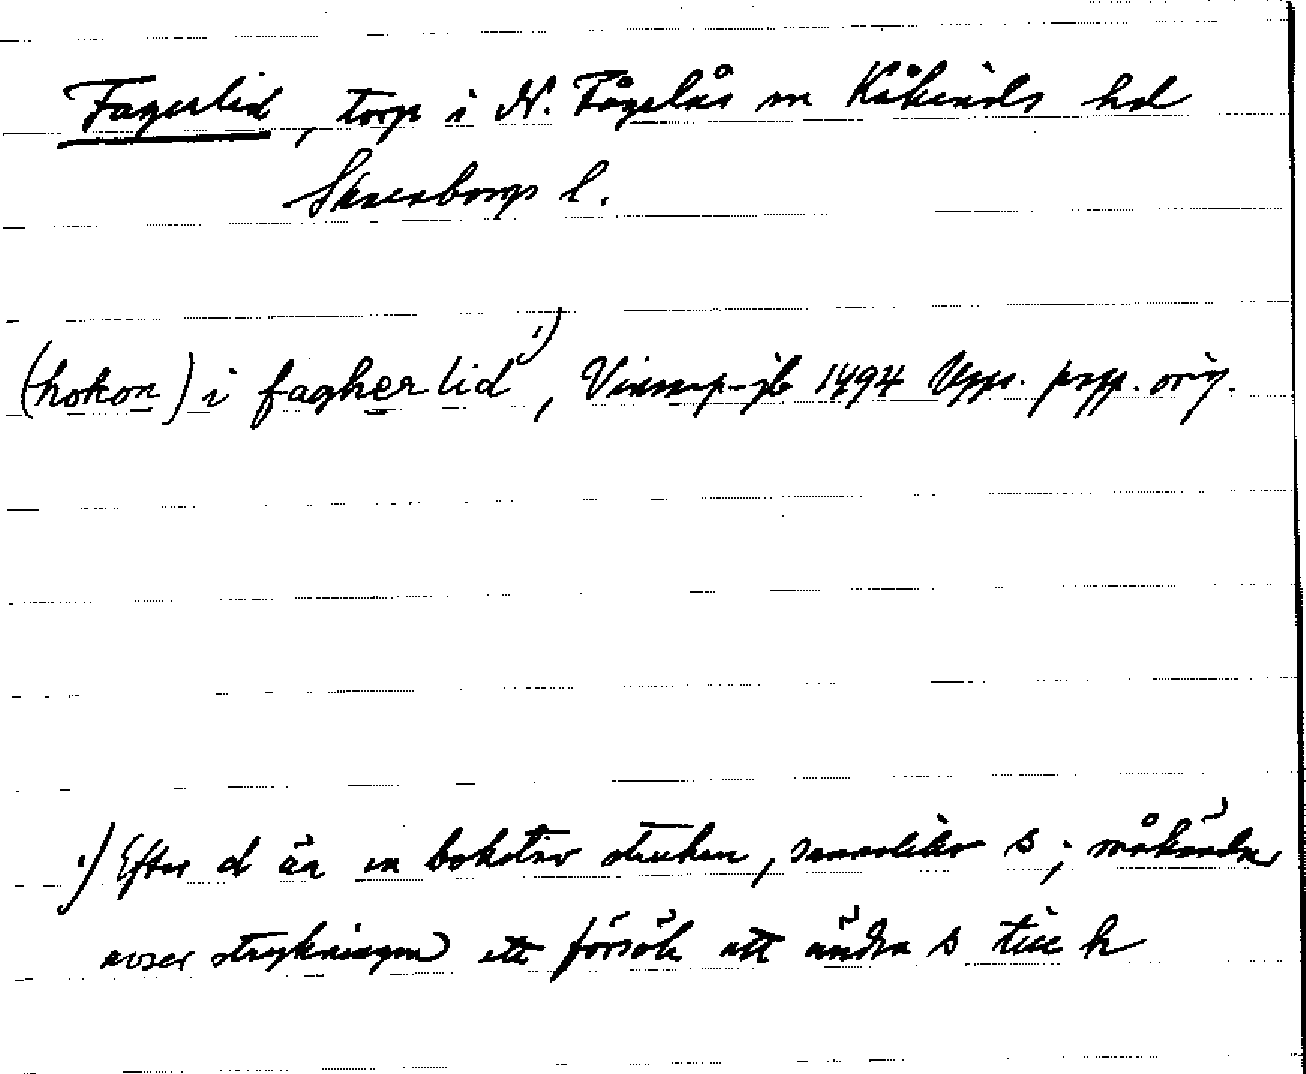 Fagerlid, torp i N. Fågelås sn Kåkinds hd
Skaraborgs l.
(hokon) i fagherlid ¹⁾, Vinsarp-jb 1494 Upps. pspp. orig.
¹⁾ Efter d är en bokstav struken, sannolikt s; måhända
avser strykningen ett försök att ändra s till h